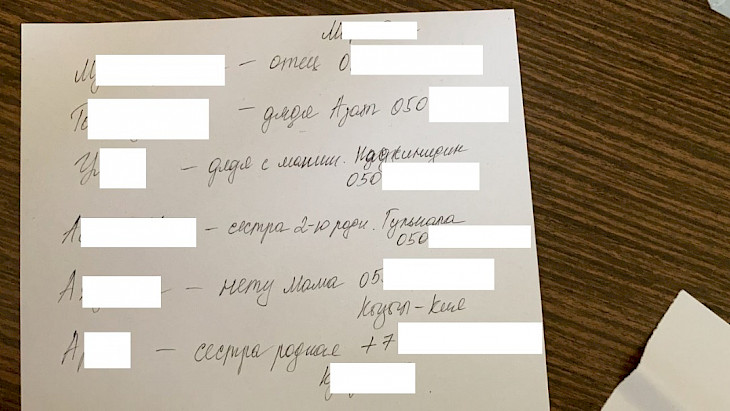 М
Му — отец 0
То — дядя Азат 050
Ул — дядя с мамин. Наджинидин
050
А — сестра 2-ю родн. Гульнара
050
А — нету мама 05
Кызыл-Кия
А — сестра родная +7
К